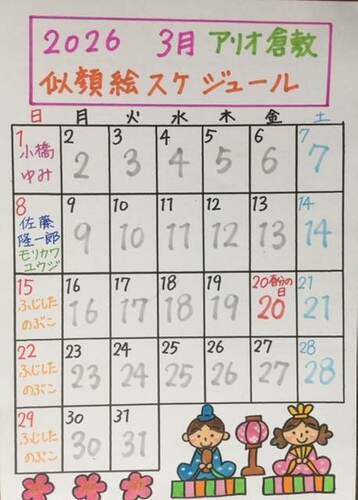 2026 3月 アリオ倉敷
似顔絵スケジュール
日 月 火 水 木 金 土
1 2 3 4 5 6 7
小橋 2 3 4 5 6 7
ゆみ
8 9 10 11 12 13 14
佐藤 9 10 11 12 13 14
隆一郎
モリカワ
ユウジ
15 16 17 18 19 20 春分の日 21
ふじした 16 17 18 19 20 21
のぶこ
22 23 24 25 26 27 28
ふじした 23 24 25 26 27 28
のぶこ
29 30 31
ふじした 30 31
のぶこ